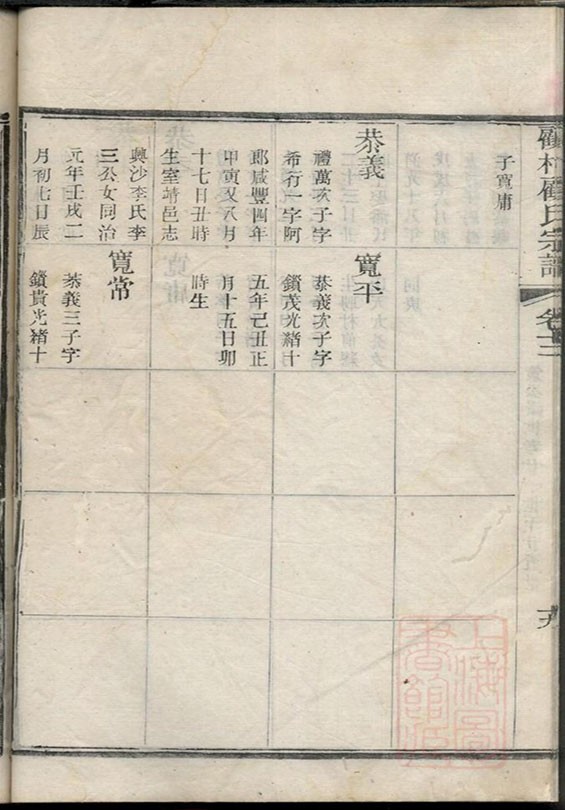 顧村顧氏宗譜
卷十二
子寬庸
恭義
禮萬次子字
希行一字阿
郎咸豐四年
甲寅又八月
十七日丑時
生室靖邑志
興沙李氏李
三公女同治
元年壬戌二
月初七日辰
寬平
恭義次子字
鎖茂光緒十
五年己丑正
月十五日卯
時生
寬常
恭義三子字
鎖貴光緒十
上海圖
書館藏